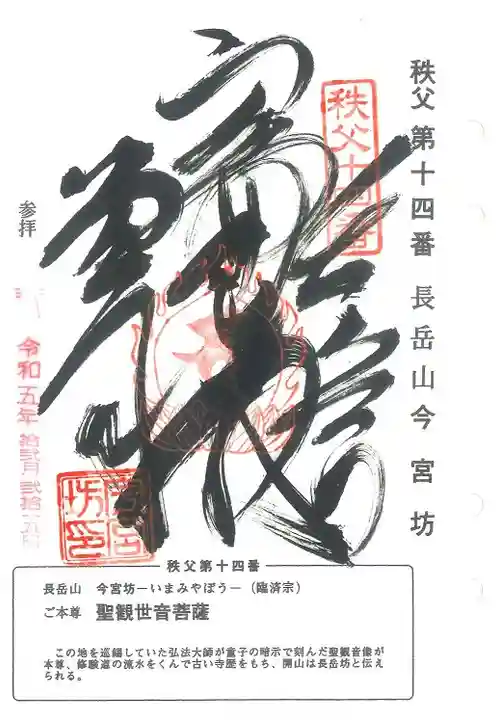 秩父 第十四番 長岳山今宮坊
秩父十四番
参拝
令和五年 拾弐月 弐拾五日
秩父第十四番
長岳山 今宮坊ーいまみやぼうー（臨済宗）
ご本尊 聖観世音菩薩
この地を巡錫していた弘法大師が童子の暗示で刻んだ聖観音像が
本尊、修験道の流水をくんで古い寺歴をもち、開山は長岳坊と伝え
られる。